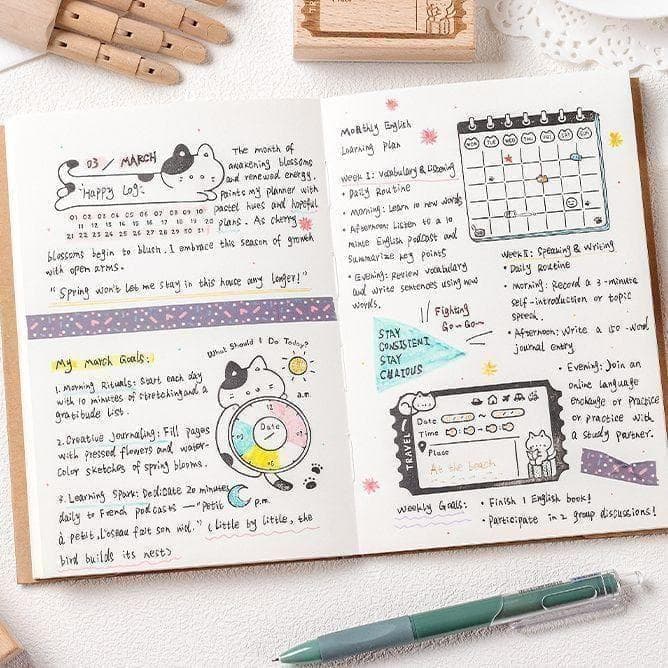 03 / MARCH
Happy Log:
01 02 03 04 05 06 07 08 09 10
11 12 13 14 15 16 17 18 19 20
21 22 23 24 25 26 27 28 29 30 31
The month of
awakening blossoms
and renewed energy.
Paints my planner with
pastel hues and hopeful
plans. As cherry
blossoms begin to blush, I embrace this season of growth
with open arms.
"Spring won't let me stay in this house any longer!"
My March Goals:
1. Morning Rituals: Start each day
with 10 minutes of stretching and a
gratitude list.
2. Creative journaling: Fill pages
with pressed flowers and water-
color sketches of spring blooms.
3. Learning Spark: Dedicate 20 minutes
daily to French podcasts — "Petit
à petit, L'oseau fait son nid." (Little by little, the
bird builds its nest)
What Should I Do Today?
a.m.
12
Date
p.m.
Monthly English
Learning Plan
Week I: Vocabulary & Listening
Daily Routine
• Morning: Learn 10 new words
• Afternoon: Listen to a 10
minute English podcast and
summarize key points
• Evening: Review vocabulary
and write sentences using new
words.
Fighting
Go~Go~
STAY
CONSISTENT
STAY
CURIOUS
MON TUE WED THU FRI SAT SUN
Week II: Speaking & Writing
• Daily Routine
• Morning: Record a 3-minute
self-introduction or topic
speech.
• Afternoon: Write a 150-word
journal entry
• Evening: Join an
online language
exchange or practice
or practice with
a study partner.
TRAVEL
Date
Time
Place
At the beach
Weekly Goals:
• Finish 1 English book!
• Participate in 2 group discussions!